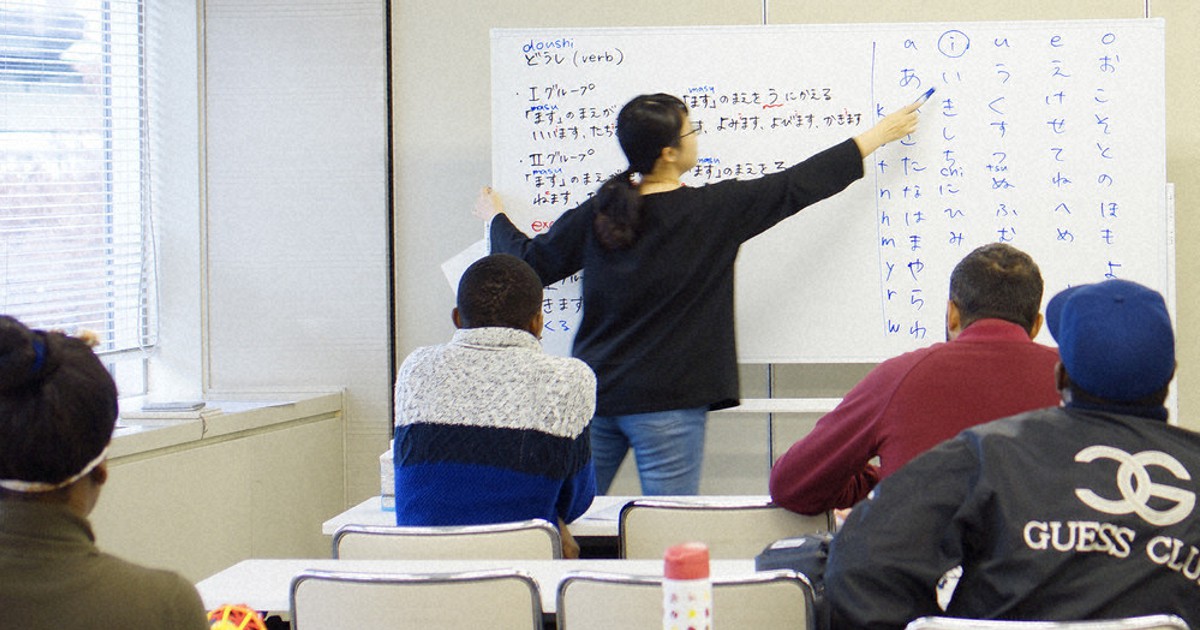 doushi
どうし (verb)
・Iグループ
masu
「ます」のまえが
masu
「ます」のまえを う にかえる
いいます、たち
す、よみます、よびます、かきます
・IIグループ
masu
「ます」のまえが
masu
ます」のまえを る
ねます、
きます
くる
a i u e o
あ い う え お
k き く け こ
し す せ そ
た ち つ て と
chi tsu
n な に ぬ ね の
h は ひ ふ へ ほ
m ま み む め も
y や よ
r ら
w わ
GUESS CLU